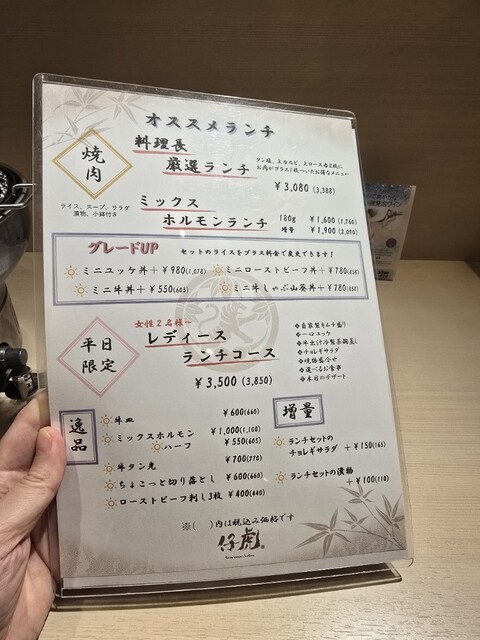 オススメランチ
焼肉
ライス、スープ、サラダ
漬物、小鉢付き
料理長
厳選ランチ
タン塩、上カルビ、上ロース各2枚に
お肉がプラス1枚ついたお得なメニュー
¥3,080 (3,388)
ミックス
ホルモンランチ
180g ¥1,600 (1,760)
増量 ¥1,900 (2,090)
グレードUP セットのライスをプラス料金で変更できます!
ミニユッケ丼+¥980(1,078) ミニローストビーフ丼+¥780(858)
ミニ牛丼+¥550(605) ミニ牛しゃぶ山葵丼+¥780(858)
平日限定
女性2名様~
レディース
ランチコース
¥3,500 (3,850)
❖自家製キムチ盛り
❖一口ユッケ
❖牛出汁冷製茶碗蒸し
❖チョレギサラダ
❖焼物盛合せ
❖選べるお食事
❖本日のデザート
逸品
牛皿 ¥600(660)
ミックスホルモン ¥1,000(1,100)
ハーフ ¥550(605)
牛タン先 ¥700(770)
ちょこっと切り落とし ¥600(660)
ローストビーフ刺し3枚 ¥400(440)
増量
ランチセットの
チョレギサラダ +¥150(165)
ランチセットの漬物
+¥100(110)
※( )内は税込み価格です
仔虎